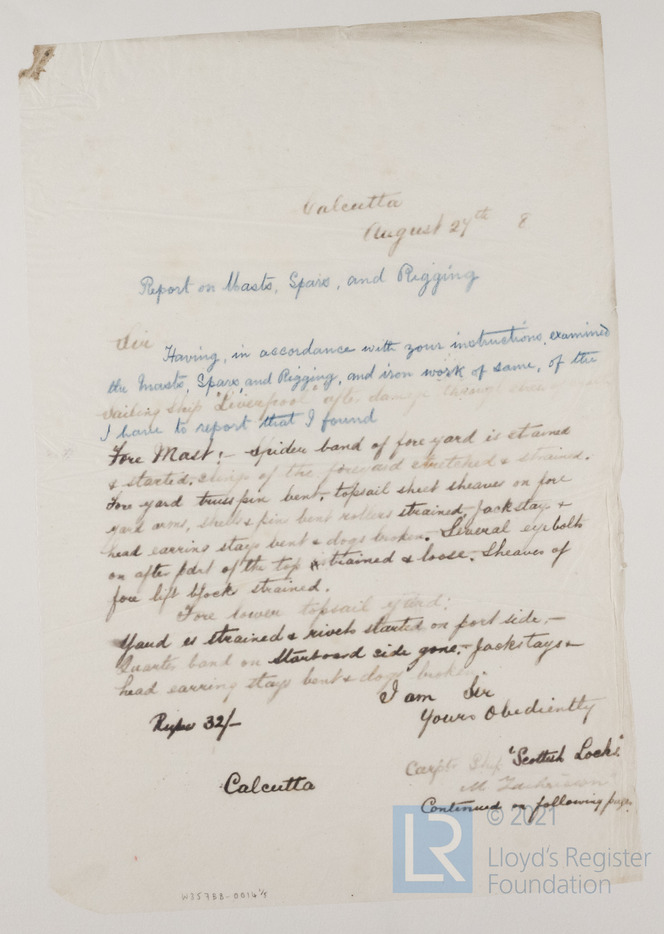 Calcutta
August 27th 8
Report on Masts, Spars, and Rigging
Sir
Having, in accordance with your instructions, examined
the Masts, Spars, and Rigging, and iron work of same, of the
sailing ship "Liverpool" after damage through
I have to report that I found
Fore Mast :- Spider band of fore yard is strained
& started. slings of the foreyard stretched & strained.
Fore yard truss pin bent. topsail sheet sheaves on fore
yard arms, sheaves & pins bent rollers strained. Jackstays &
head earring stays bent & dogs broken. Several eyebolts
on after part of the top strained & loose. Sheaves of
fore lift blocks strained.
Fore lower topsail yard:
Yard is strained & rivets started on port side. -
Quarter band on Starboard side gone. - Jackstays &
head earring stays bent & dogs broken
I am Sir
Yours Obediently
Rupees 32/-
Carptr Ship "Scottish Locks"
Calcutta
Continued on following page.
© 2021
LR
Lloyd's Register
Foundation